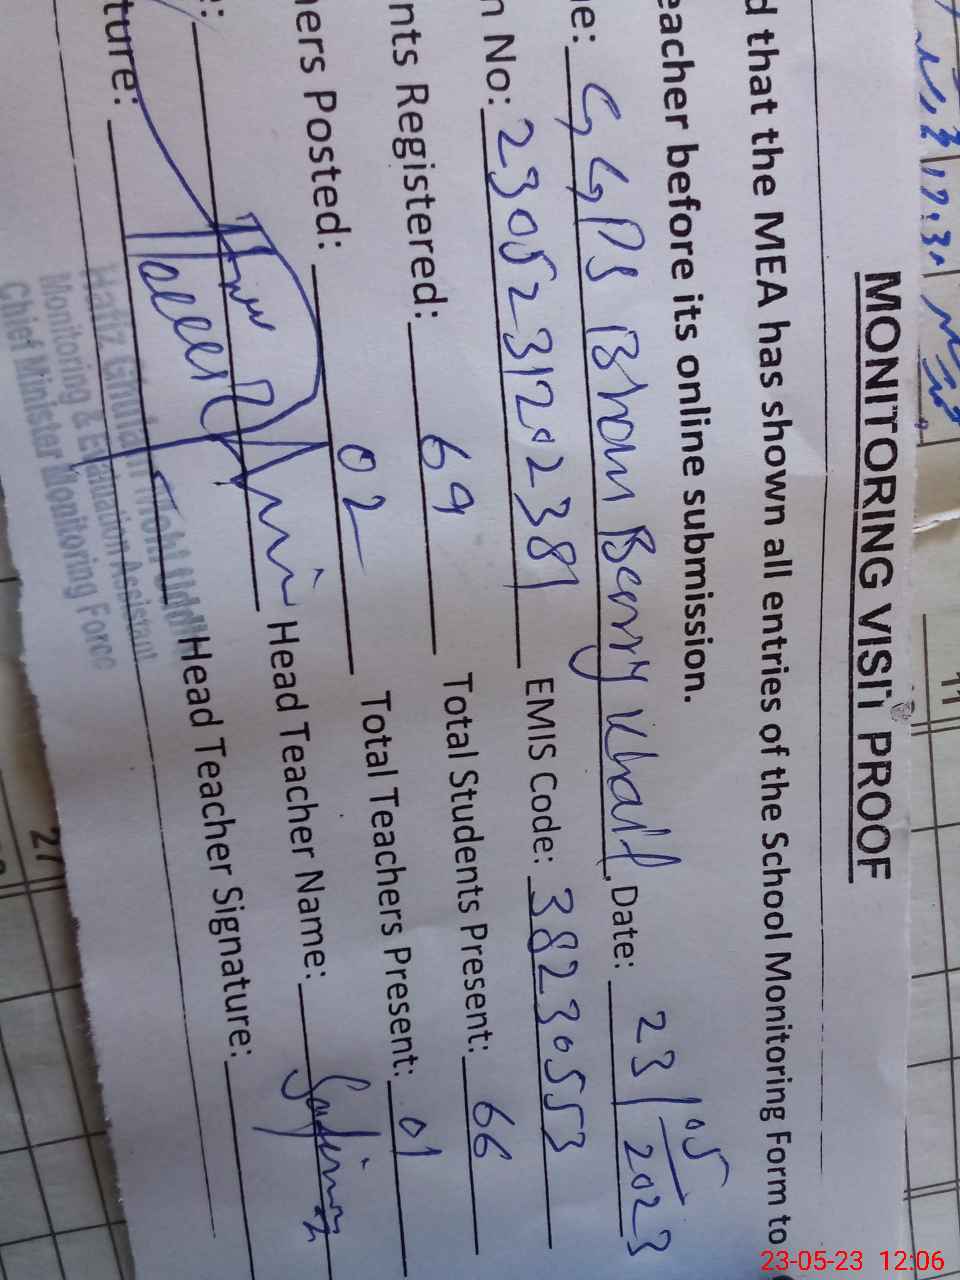 MONITORING VISIT PROOF
d that the MEA has shown all entries of the School Monitoring Form to
eacher before its online submission.
e: GGPS Bhan Berry Date: 23/05/2023
n No: 2305231202381 EMIS Code: 38230553
nts Registered: 69 Total Students Present: 66
ners Posted: 02 Total Teachers Present: 01
: Head Teacher Name:
ture: Head Teacher Signature:
Hafiz Ghulam
Monitoring & Evaluation Assistant
Chief Minister Monitoring Force
11
27
23-05-23 12:06